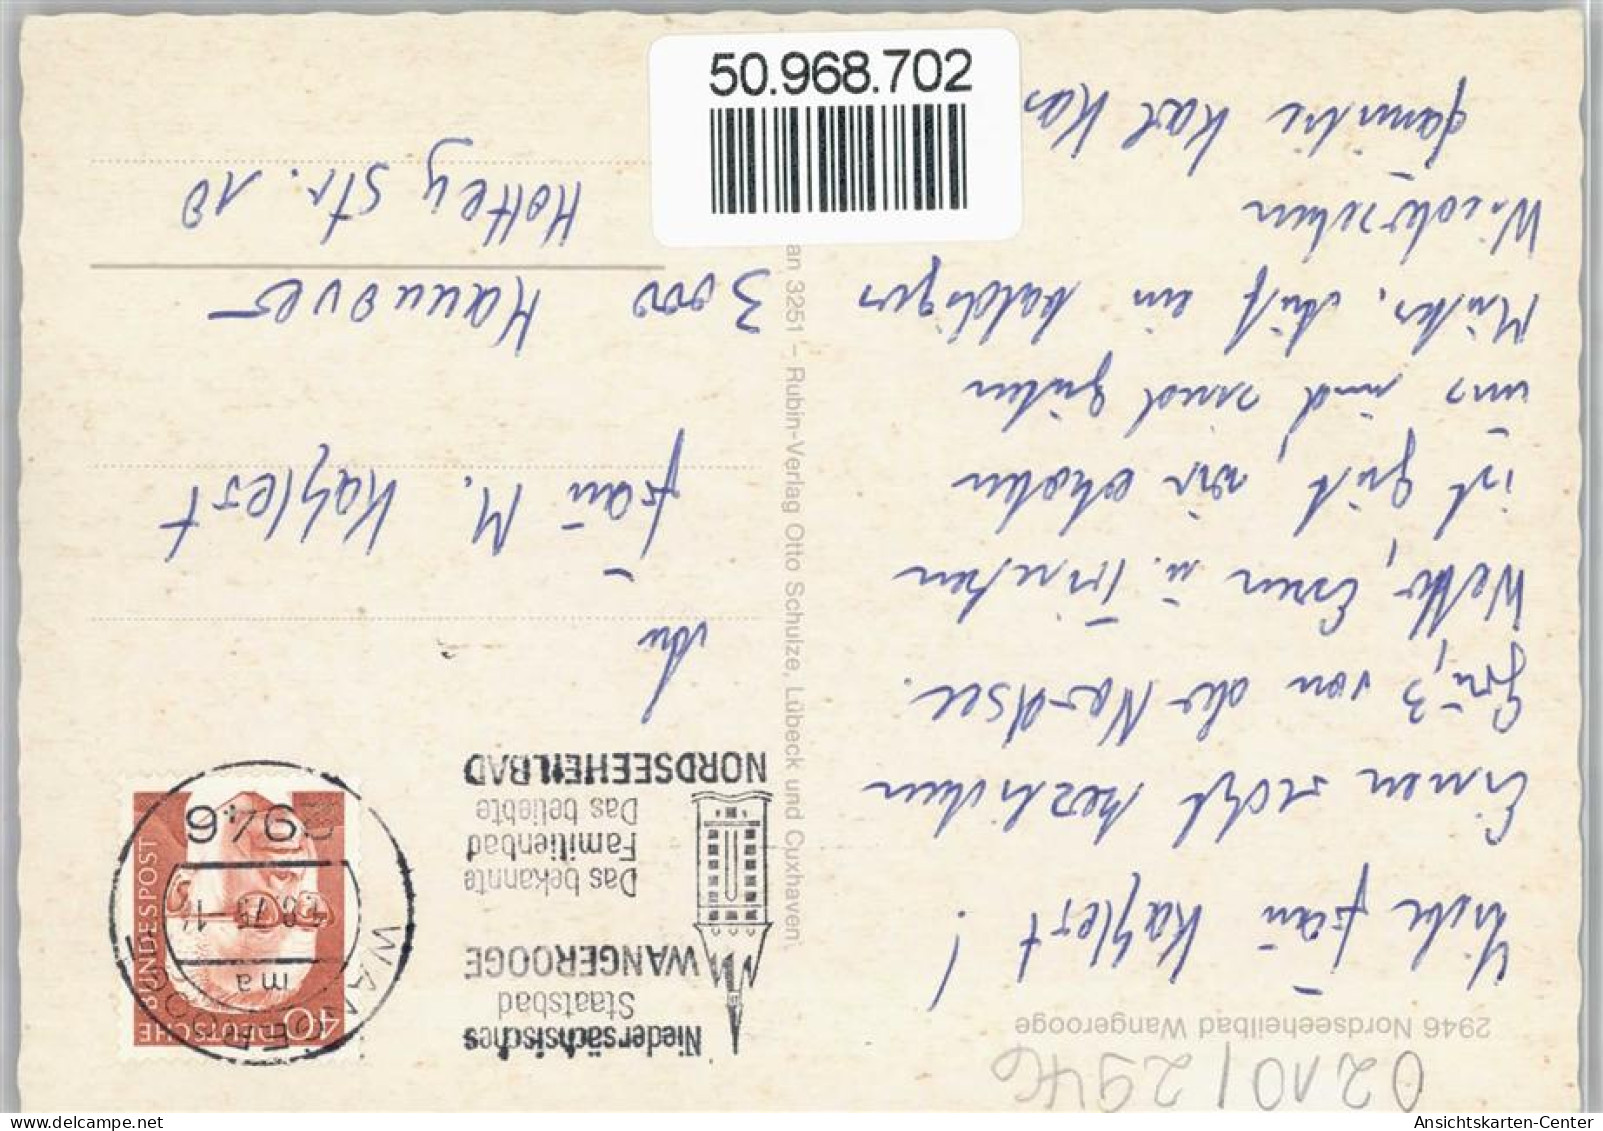 50.968.702
02101 2946
2946 Nordseeheilbad Wangerooge
Liebe Frau Kahlert!
Einen recht herzlichen
Gruß von der Nordsee.
Wetter, Essen u. Trinken
ist gut, wir erholen
uns und sind guten
Mutes. Auf ein baldiges
Wiedersehen
Familie Karl
an 3251 – Rubin-Verlag Otto Schulze, Lübeck und Cuxhaven
Niedersächsisches
Staatsbad
WANGEROOGE
Das bekannte
Familienbad
Das beliebte
NORDSEEHEILBAD
DEUTSCHE BUNDESPOST
40
WANGEROOGE
ma
2946
Frau M. Kahlert
3000 Hannover
Str. 10
Ansichtskarten-Center